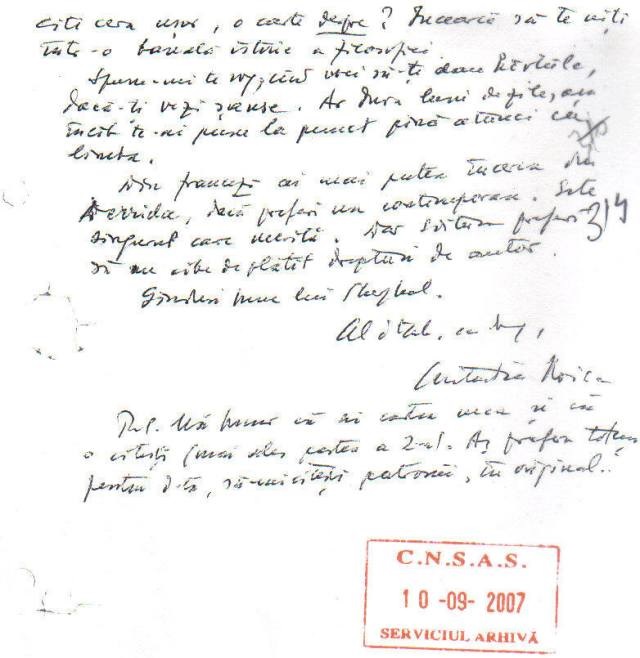 citi ceva ușor, o carte despre? Încearcă să te uiți
într-o banală istorie a filosofiei
Spune-mi te rog, cînd vrei să-ți dau
dacă-ți vezi șanse. Ar dura luni de zile, așa
încît te-ai pune la punct pînă atunci cu
limba.
Din franceză ai mai putea încerca din
Derrida, dacă preferi un contemporan. Este
singurul care merită. Dar preferă
314
să nu aibe de plătit drepturi de autor.
Gînduri bune lui
Al d-tale, cu drag,
Constantin Noica
P.S. Mă bucur că ai cartea mea și că
o citești (mai ales partea a 2-a). Aș prefera totuși
pentru d-ta, să-mi citești patronii, în original..
C.N.S.A.S.
10 -09- 2007
SERVICIUL ARHIVĂ